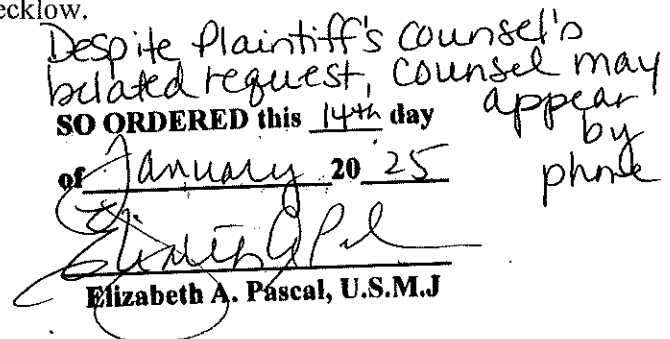 ecklow.
Despite Plaintiff's counsel's
belated request, counsel may
appear
by
phone
SO ORDERED this 14th day
of January 20 25
Elizabeth A. Pascal, U.S.M.J